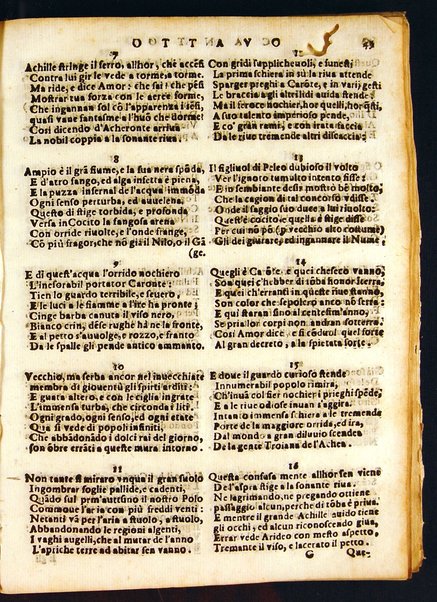 OTTAVO
7
Achille stringe il ferro, allhor, che accesi
Contra lui gir le vede a torme, a torme.
Ma ride, e dice Amor: che fai? che pési
Mostrar tua forza con le acree forme,
Che ingannan sol cõ l'apparenza i sési,
quasi vane fantasme a l'huõ che dorme?
Cosi dicendo d'Acheronte arriua
La nobil coppia a la sonante riua.
8
Ampio è il grã fiume, e la sua nera spóda,
E d'atro fango, ed alga infetta è piena,
E la puzza infernal de l'acqua immóda
Ogni senso perturba, ed auuelena.
Questo di stige torbida, e profonda
Versa in Cocito la fangosa arena.
Con orride riuolte, e l'onde frange,
Cõ piu fragor, che nõ già il Nilo, o il Gã
(ge.
9
E di quest'acqua l'orrido nochiero
L'inesorabil portator Caronte:
Tien lo guardo terribile, e seuero,
E le luci a le fiamme a l'ire ha pronte;
Cinge barba canuta il viso nero,
Bianco crin, dése rughe hà ne la fronte,
E al petto s'auuolge, e rozzo, e franto
Da le spalle gli pende antico ammanto.
10
Vecchio, ma serba ancor nel inuecchiate
membra di giouentù gli spirti arditi:
E con lo sguardo, e con le ciglia ingrate
L'immensa turba, che circonda i liti.
Ogni grado, ogni sesso, ed ogni etate
Qui si vede di popoli infiniti,
Che abbãdonãdo i dolci rai del giorno,
son óbre erráti a queste mura intorno.
11
Non tante si miraro vnqua il gran suolo
Ingombrar foglie pallide, e cadenti,
Quãdo sul prim'autũno il nostro Polo
Commoue l'aria con più freddi venti:
Ne tanti và per l'aria a stuolo, a stuolo,
Abbandonando le regioni algenti,
I vaghi augelli, che al mutar de l'anno
L'apriche terre ad abitar sen vanno.
12
Con gridi sapplicheuoli, e funesti
La prima schiera in sù la riua attende
Sparger preghi a Carõte, e in vari gesti
Le braccia a gli altri lidi auida stende:
Ma il feroce nochier, hor quelli, hor qsti,
A suo talento imperioso pende,
E cõ' gran rami, e con irata faccia
Da le riue tremendo altri discaccia.
13
Il figliuol di Peleo dubioso il volto
Ver l'ignoto tumulto intento fisse:
E in sembiante desio mostrò bẽ molto,
Che la cagion di tal concorso vdisse.
Onde il saggio suo duce a lui riuolto:
Quest'è cocito e quella è stige disse
Per cui nõ põ (p vecchio alto costume)
Gli dei giurare, ed ingannare il Nume.
14
Quegli è Carõte, e qui checeso vanno,
Son quei c'hebber di tõba honor Iterra,
E quei ch'erranti in queste riue stanno,
Son color che sepolcro anco nõ serra,
E qui staran fino al centesim'anno,
Se pria lor corpi non andran sotterra.
Cosi Amor dice, e si cõduol quel forte
Al gran decreto, a la spietata sorte.
15
E mentre il guardo curioso stende
Innumerabil popolo rimira,
Ch'inuã col fier nochier i prieghi spẽde,
E a le riue odiose vnan s'aggira.
Intanto immensa schiera a le tremende
Porte de la maggiore orrida, ed ira,
Dal mondo a gran diluuio scendea
De la gente Troiana, e de l'Achea.
16
Questa confusa mente allhor sen viene
De l'aspra stige a la sonante riua.
Ne lagrimando, ne pregando ottiene
passaggio alcun, perche di tõba è priua.
E mentre il grande Achille auido tiene
gli occhi, ed alcun riconosceado giua,
Errar vede Arideo con mesto aspetto,
Tremante il viso, e lacerato il petto.
G
Que-